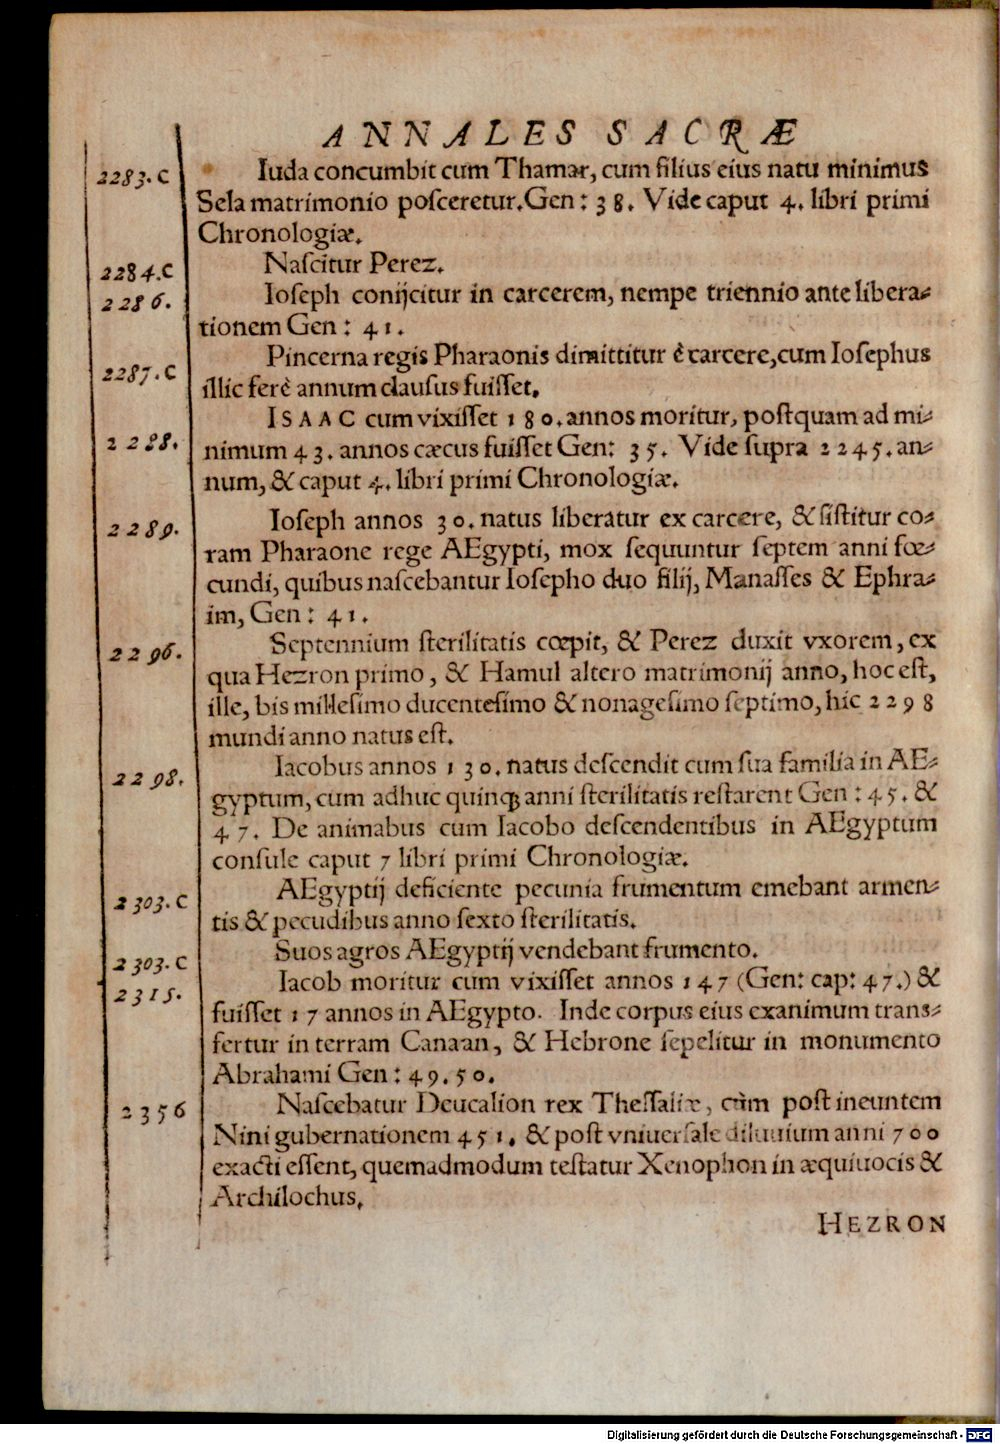 ANNALES SACRÆ
2283. C Iuda concumbit cum Thamar, cum filius eius natu minimus
Sela matrimonio posceretur. Gen: 38. Vide caput 4. libri primi
Chronologiæ.
2284. C Nascitur Perez.
2286. Ioseph conijcitur in carcerem, nempe triennio ante libera-
tionem Gen: 41.
2287. C Pincerna regis Pharaonis dimittitur è carcere, cum Iosephus
illic ferè annum clausus fuisset.
2288. ISAAC cum vixisset 180. annos moritur, postquam ad mi-
nimum 43. annos cæcus fuisset Gen: 35. Vide supra 2245. an-
num, & caput 4. libri primi Chronologiæ.
2289. Ioseph annos 30. natus liberatur ex carcere, & sistitur co-
ram Pharaone rege AEgypti, mox sequuntur septem anni fœ-
cundi, quibus nascebantur Iosepho duo filij, Manasses & Ephra-
im, Gen: 41.
2296. Septennium sterilitatis cœpit, & Perez duxit vxorem, ex
qua Hezron primo, & Hamul altero matrimonij anno, hoc est,
ille, bis millesimo ducentesimo & nonagesimo septimo, hic 2298
mundi anno natus est.
2298. Iacobus annos 130. natus descendit cum sua familia in AE-
gyptum, cum adhuc quinq; anni sterilitatis restarent Gen: 45. &
47. De animabus cum Iacobo descendentibus in AEgyptum
consule caput 7 libri primi Chronologiæ.
2303. C AEgyptij deficiente pecunia frumentum emebant armen-
tis & pecudibus anno sexto sterilitatis.
2303. C Suos agros AEgyptij vendebant frumento.
2315. Iacob moritur cum vixisset annos 147 (Gen: cap: 47.) &
fuisset 17 annos in AEgypto. Inde corpus eius exanimum trans-
fertur in terram Canaan, & Hebrone sepelitur in monumento
Abrahami Gen: 49. 50.
2356 Nascebatur Deucalion rex Thessaliæ, cùm post ineuntem
Nini gubernationem 451. & post vniuersale diluuium anni 700
exacti essent, quemadmodum testatur Xenophon in æquiuocis &
Archilochus.
HEZRON
Digitalisierung gefördert durch die Deutsche Forschungsgemeinschaft - DFG